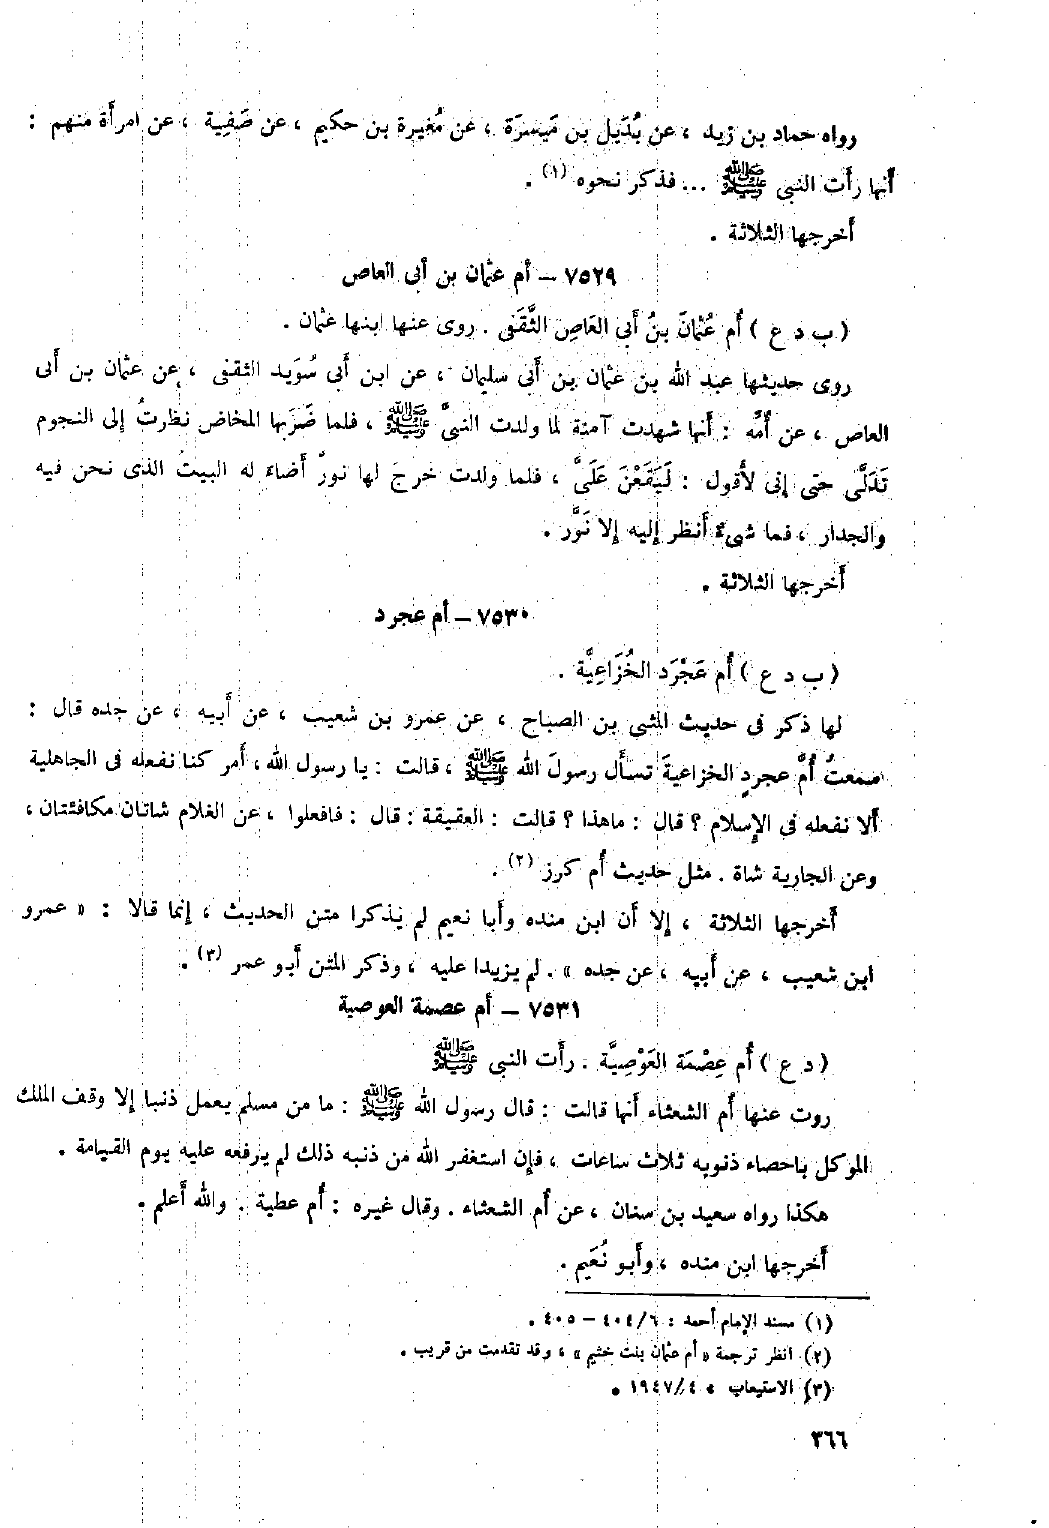 رواه حماد بن زيد ، عن بُدَيل بن مَيسرَة ، عن مُغيرة بن حكيم ، عن صَفِية ، عن امرأة منهم :
أنها رأت النبى ﷺ ... فذكر نحوه (١) .
أخرجها الثلاثة .
٧٥٢٩ – أم عثمان بن أبى العاص
( ب د ع ) أُم عُثمَانَ بنُ أَبي العَاصِ الثَّقَفى . روى عنها ابنها عثمان .
روى حديثها عبد الله بن عثمان بن أبى سليمان ، عن ابن أبى سُوَيد الثقفى ، عن عثمان بن أبى
العاص ، عن أُمِّه : أنها شهدت آمنة لما ولدت النبىَّ ﷺ ، فلما ضَرَبها المخاض نظرتُ إلى النجوم
تَدَلَّى حتى إنى لأَقول : لَيَقَعْنَ عَلَىَّ ، فلما ولدت خرجَ لها نورٌ أضاءَ له البيتُ الذى نحن فيه
والجدار ، فما شىءٌ أنظر إليه إلا نَوَّر .
أخرجها الثلاثة .
٧٥٣٠ – أم عجرد
( ب د ع ) أُم عَجْرَد الخُزَاعِيَّة .
لها ذكر فى حديث المثنى بن الصباح ، عن عمرو بن شعيب ، عن أبيه ، عن جده قال :
سمعتُ أُمَّ عجردٍ الخزاعيةَ تسأَل رسولَ الله ﷺ ، قالت : يا رسول الله ، أمر كنا نفعله فى الجاهلية
ألا نفعله فى الإسلام ؟ قال : ماهذا ؟ قالت : العقيقة : قال : فافعلوا ، عن الغلام شاتان مكافئتان ،
وعن الجارية شاة . مثل حديث أُم كرز (٢) .
أخرجها الثلاثة ، إلا أن ابن منده وأبا نعيم لم يذكرا متن الحديث ، إنما قالا : « عمرو
ابن شعيب ، عن أبيه ، عن جده » . لم يزيدا عليه ، وذكر المتن أبو عمر (٣) .
٧٥٣١ – أم عصمة العوصية
( د ع ) أُم عِصْمَة العَوْصِيَّة . رأت النبى ﷺ
روت عنها أم الشعثاء أنها قالت : قال رسول الله ﷺ : ما من مسلم يعمل ذنبا إلا وقف الملك
الموكل باحصاء ذنوبه ثلاث ساعات ، فإن استغفر الله من ذنبه ذلك لم يرفعه عليه يوم القيامة .
هكذا رواه سعيد بن سنان ، عن أُم الشعثاء . وقال غيره : أُم عطية . والله أعلم .
أخرجها ابن منده ، وأبو نُعَيم .
(١) مسند الإمام أحمد : ٦/ ٤٠٤ – ٤٠٥ .
(٢) انظر ترجمة « أم عثمان بنت خثيم » ، وقد تقدمت من قريب .
(٣) الاستيعاب : ٤/ ١٩٤٧ .
٣٦٦